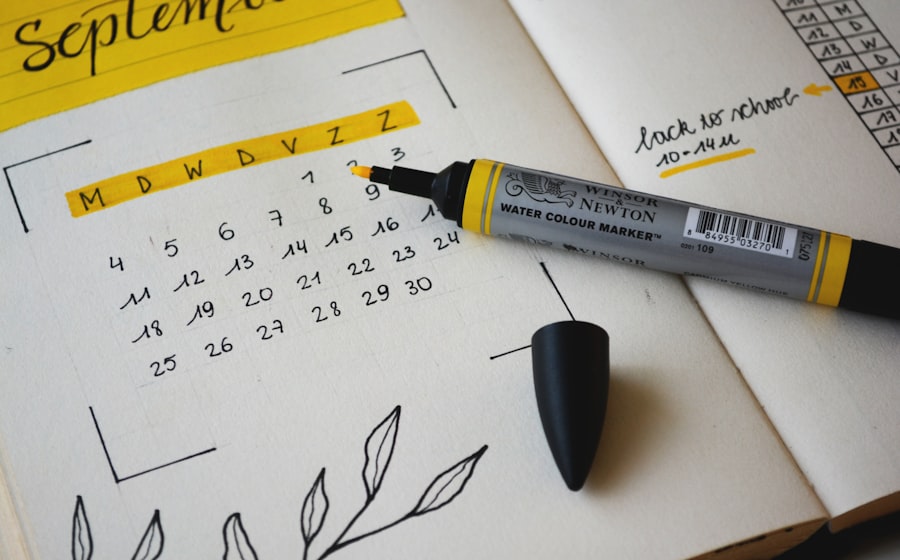 September
M D W D V Z Z
1 2 3
4 5 6 7 8 9
11 12 13 14 15 16
18 19 20 21 22 23 24
25 26 27 28 29 30
11 M
12 D
13 W
14 D
15 V
16
17
back to school
10-14u
WINSOR
&
NEWTON
WATER COLOUR MARKER™
8 84955 03270 1
0201 109
WINSOR
CADMIUM YELLOW HUE